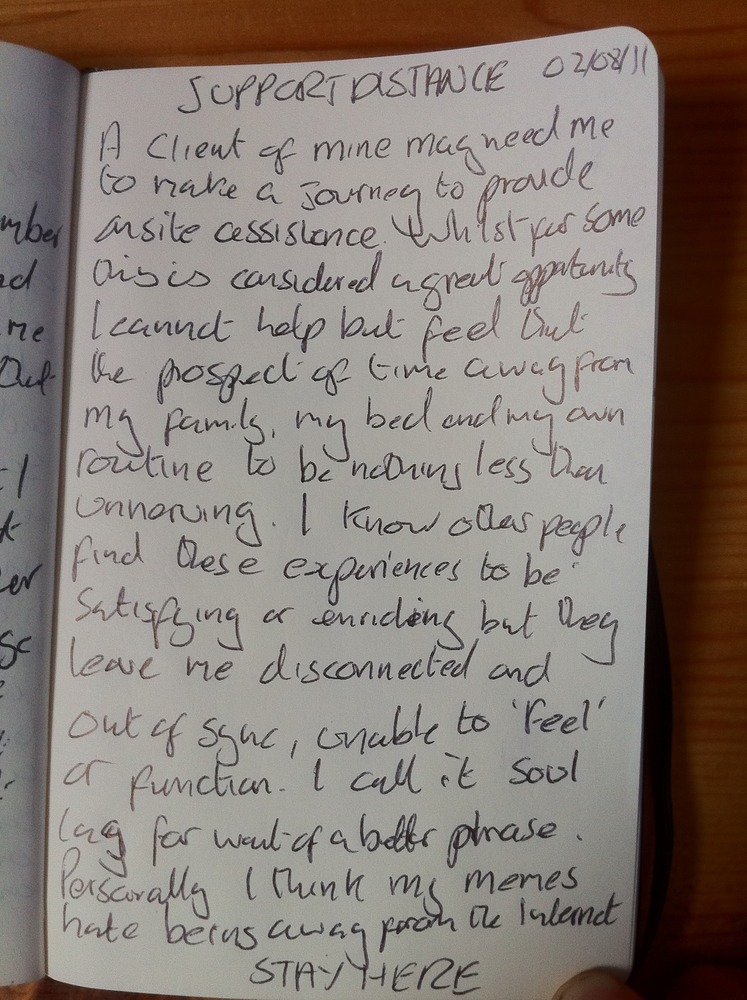 mber
ed
me
Out
SUPPORT DISTANCE 02/08/11
A Client of mine may need me
to make a journey to provide
onsite assistance. Whilst for some
this is considered a great opportunity
I cannot help but feel that
the prospect of time away from
my family, my bed and my own
routine to be nothing less than
unnerving. I know other people
find these experiences to be
satisfying or enriching but they
leave me disconnected and
out of sync, unable to 'Feel'
or function. I call it Soul
lag for want of a better phrase.
Personally I think my memes
hate being away from the Internet
STAY HERE